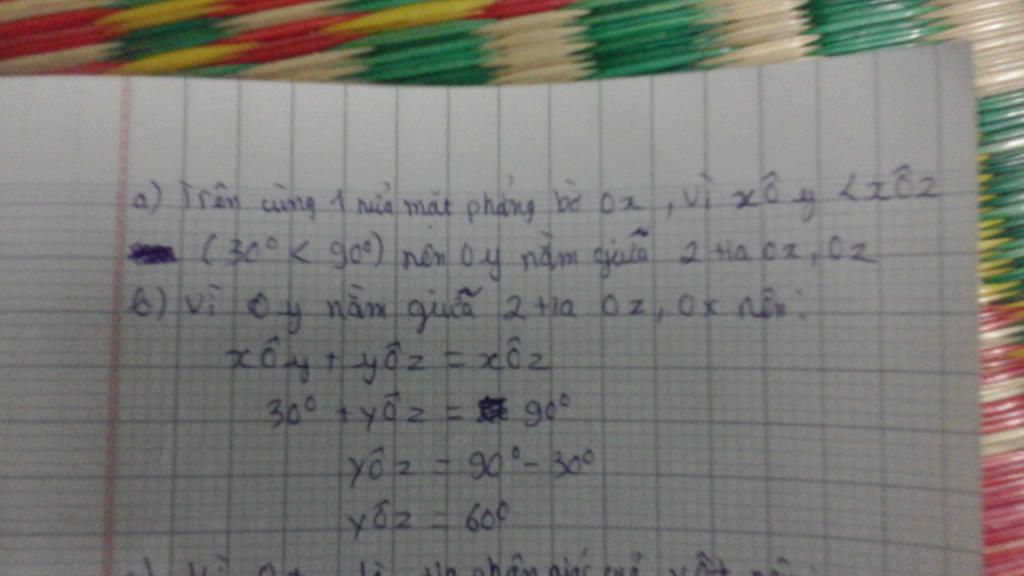 a) Trên cùng 1 nửa mặt phẳng bờ Ox, vì xÔy < xÔz
(30° < 90°) nên Oy nằm giữa 2 tia Ox, Oz
b) Vì Oy nằm giữa 2 tia Oz, Ox nên:
xÔy + yÔz = xÔz
30° + yÔz = 90°
yÔz = 90° - 30°
yÔz = 60°